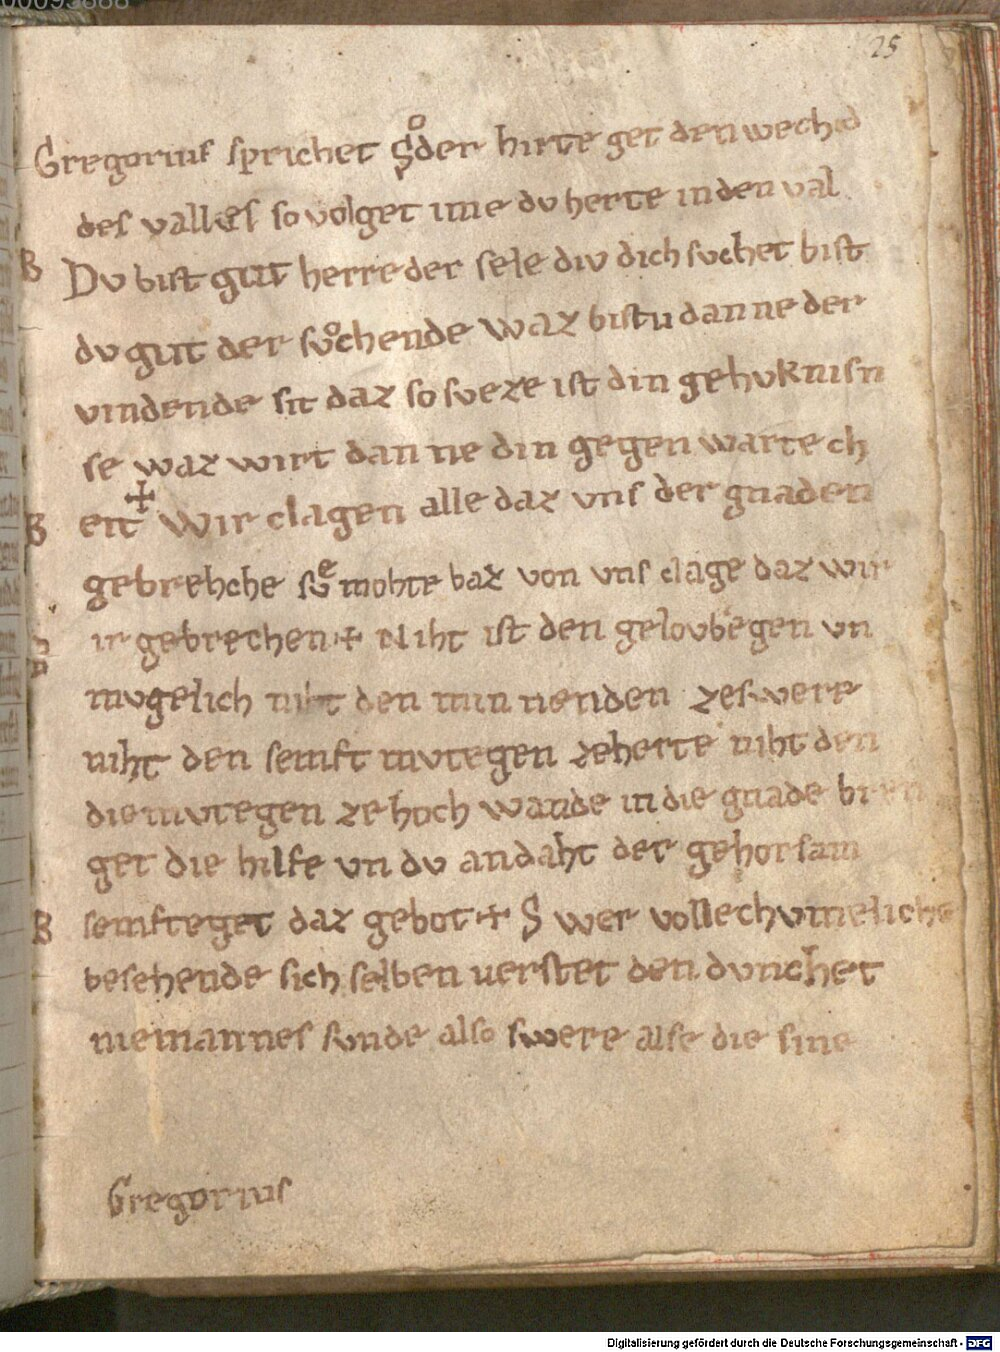 00095888
25
Gregorius sprichet Soͦder hirte get den wech
des valles so volget ime dv herte in den val
B Dv bist gut herre der sele div dich svchet bist
dv gut der svͦchende waz bistu danne der
vindende sit daz so sveze ist din gehvknisn
se waz wirt danne din gegen warte ch
B eit ✢ Wir clagen alle daz vns der gnaden
gebrehche svͤ mohte baz von vns clage daz wir
ir gebrechen ✢ Niht ist den gelovbegen vn
mvgelich niht den minnenden zeswere
niht den semft mvtegen zeherte niht den
diemvtegen zehoch wande in die gnade bren
get die hilfe vn dv andaht der gehorsam
B semfteget daz gebot ✢ S wer vollechvmeliche
besehende sich selben uerstet den dvnchet
niemannes svnde also swere alse die sine
Gregorius
Digitalisierung gefördert durch die Deutsche Forschungsgemeinschaft - DFG